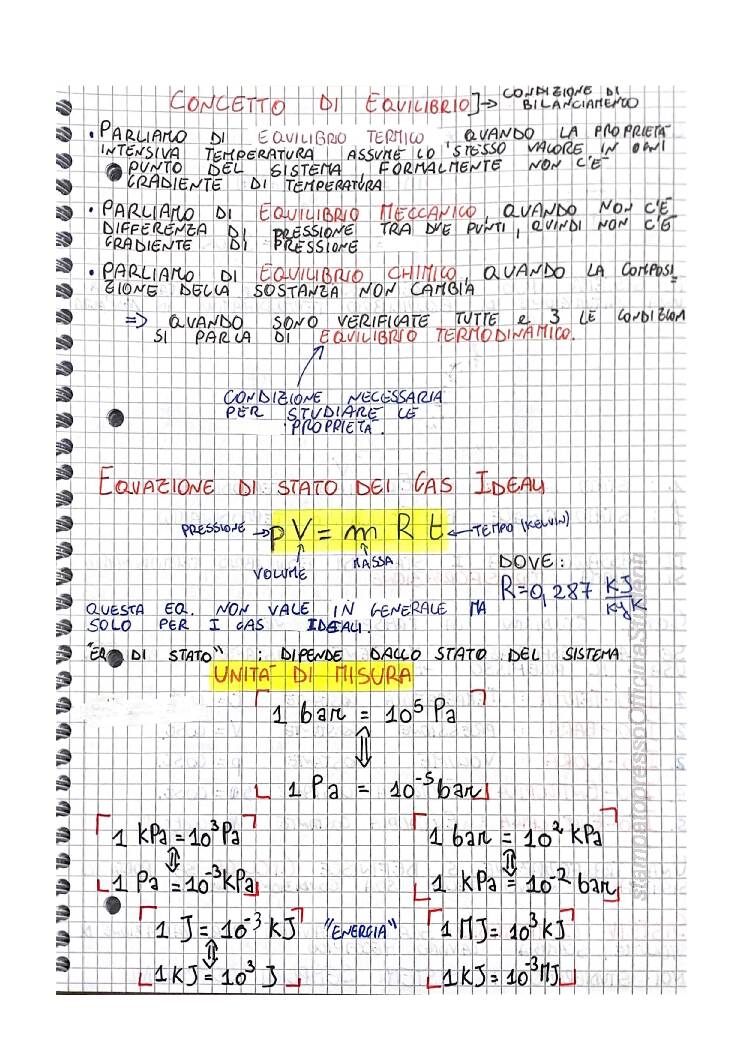 CONCETTO DI EQUILIBRIO]→ CONDIZIONE DI
BILANCIAMENTO
• PARLIAMO DI EQUILIBRIO TERMICO QUANDO LA PROPRIETÀ
INTENSIVA TEMPERATURA ASSUME LO STESSO VALORE IN OGNI
PUNTO DEL SISTEMA, FORMALMENTE NON C'È
GRADIENTE DI TEMPERATURA
• PARLIAMO DI EQUILIBRIO MECCANICO, QUANDO NON C'È
DIFFERENZA DI PRESSIONE TRA DUE PUNTI, QUINDI NON C'È
GRADIENTE DI PRESSIONE
• PARLIAMO DI EQUILIBRIO CHIMICO, QUANDO LA COMPOSI_
ZIONE DELLA SOSTANZA NON CAMBIA
=> QUANDO SONO VERIFICATE TUTTE e 3 LE CONDIZIONI
SI PARLA DI EQUILIBRIO TERMODINAMICO.
CONDIZIONE NECESSARIA
PER STUDIARE LE
PROPRIETÀ.
EQUAZIONE DI STATO DEI GAS IDEALI
PRESSIONE → pV = m R t ← TEMPO (KELVIN)
VOLUME MASSA
DOVE:
R=0,287 KJ/KgK
QUESTA EQ. NON VALE IN GENERALE MA
SOLO PER I GAS IDEALI.
"EQ DI STATO" : DIPENDE DALLO STATO DEL SISTEMA
UNITÀ DI MISURA
1 bar = 10⁵ Pa
⇕
1 Pa = 10⁻⁵ bar
1 kPa = 10³ Pa
⇕
1 Pa = 10⁻³ kPa
1 bar = 10² kPa
⇕
1 kPa = 10⁻² bar
1 J = 10⁻³ kJ "ENERGIA"
⇕
1 KJ = 10³ J
1 MJ = 10³ kJ
1 KJ = 10⁻³ MJ
stampatopressoOfficinaStudenti